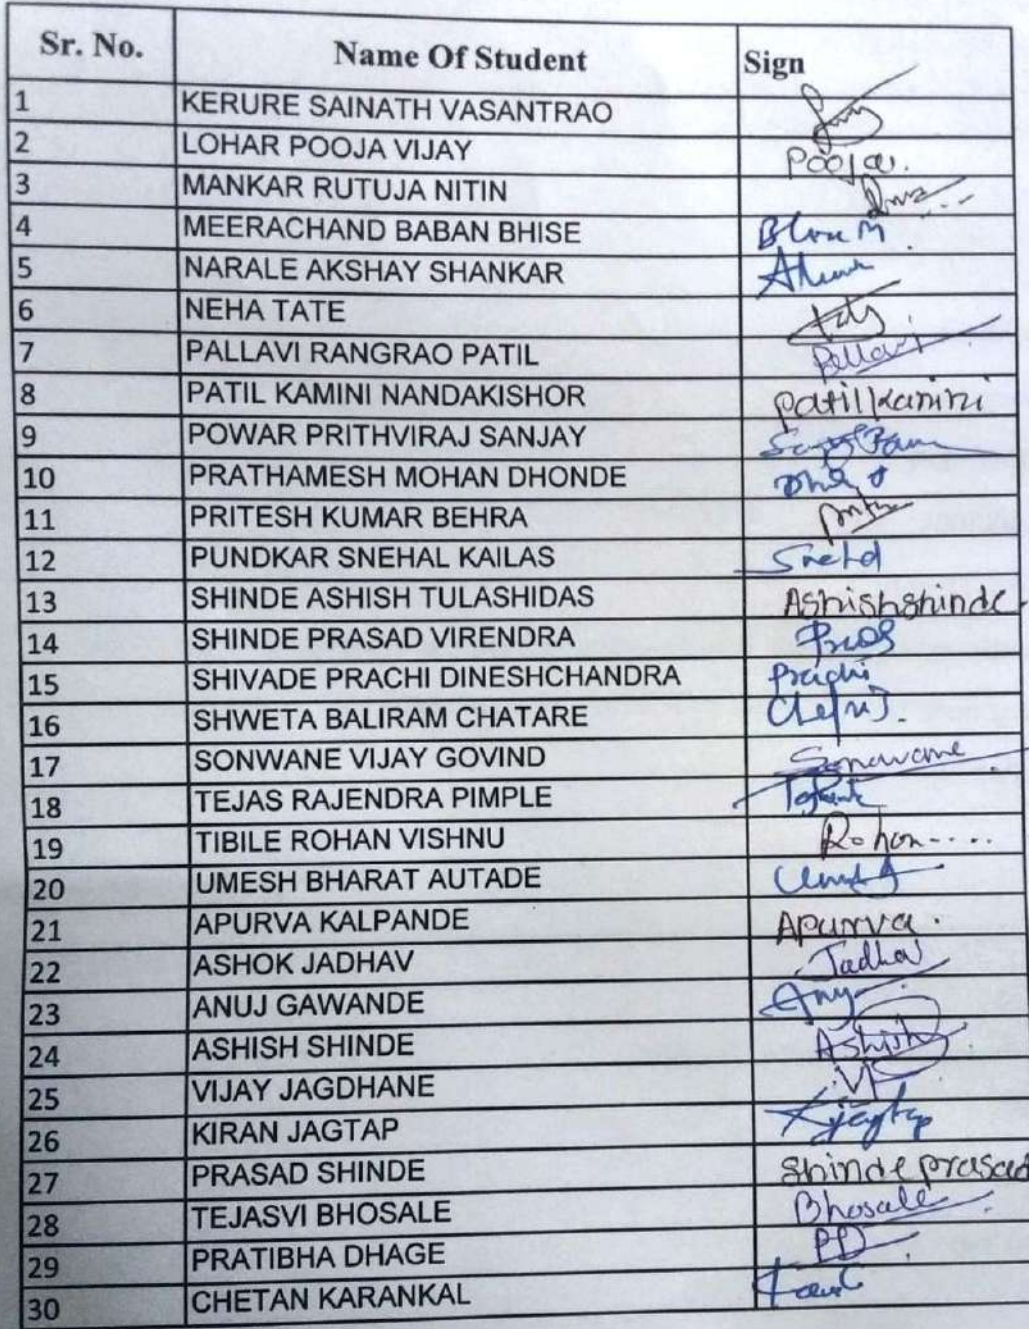 Sr. No. Name Of Student Sign
1 KERURE SAINATH VASANTRAO
2 LOHAR POOJA VIJAY Pooja.
3 MANKAR RUTUJA NITIN
4 MEERACHAND BABAN BHISE
5 NARALE AKSHAY SHANKAR
6 NEHA TATE
7 PALLAVI RANGRAO PATIL Pallavi
8 PATIL KAMINI NANDAKISHOR Patil kamini
9 POWAR PRITHVIRAJ SANJAY
10 PRATHAMESH MOHAN DHONDE
11 PRITESH KUMAR BEHRA
12 PUNDKAR SNEHAL KAILAS
13 SHINDE ASHISH TULASHIDAS Ashishshinde
14 SHINDE PRASAD VIRENDRA
15 SHIVADE PRACHI DINESHCHANDRA Prachi
16 SHWETA BALIRAM CHATARE
17 SONWANE VIJAY GOVIND Sonawane
18 TEJAS RAJENDRA PIMPLE
19 TIBILE ROHAN VISHNU Rohan....
20 UMESH BHARAT AUTADE
21 APURVA KALPANDE Apurva.
22 ASHOK JADHAV Jadhav
23 ANUJ GAWANDE
24 ASHISH SHINDE Ashish
25 VIJAY JAGDHANE
26 KIRAN JAGTAP Kjagtap
27 PRASAD SHINDE Shinde prasad
28 TEJASVI BHOSALE Bhosale
29 PRATIBHA DHAGE PD
30 CHETAN KARANKAL